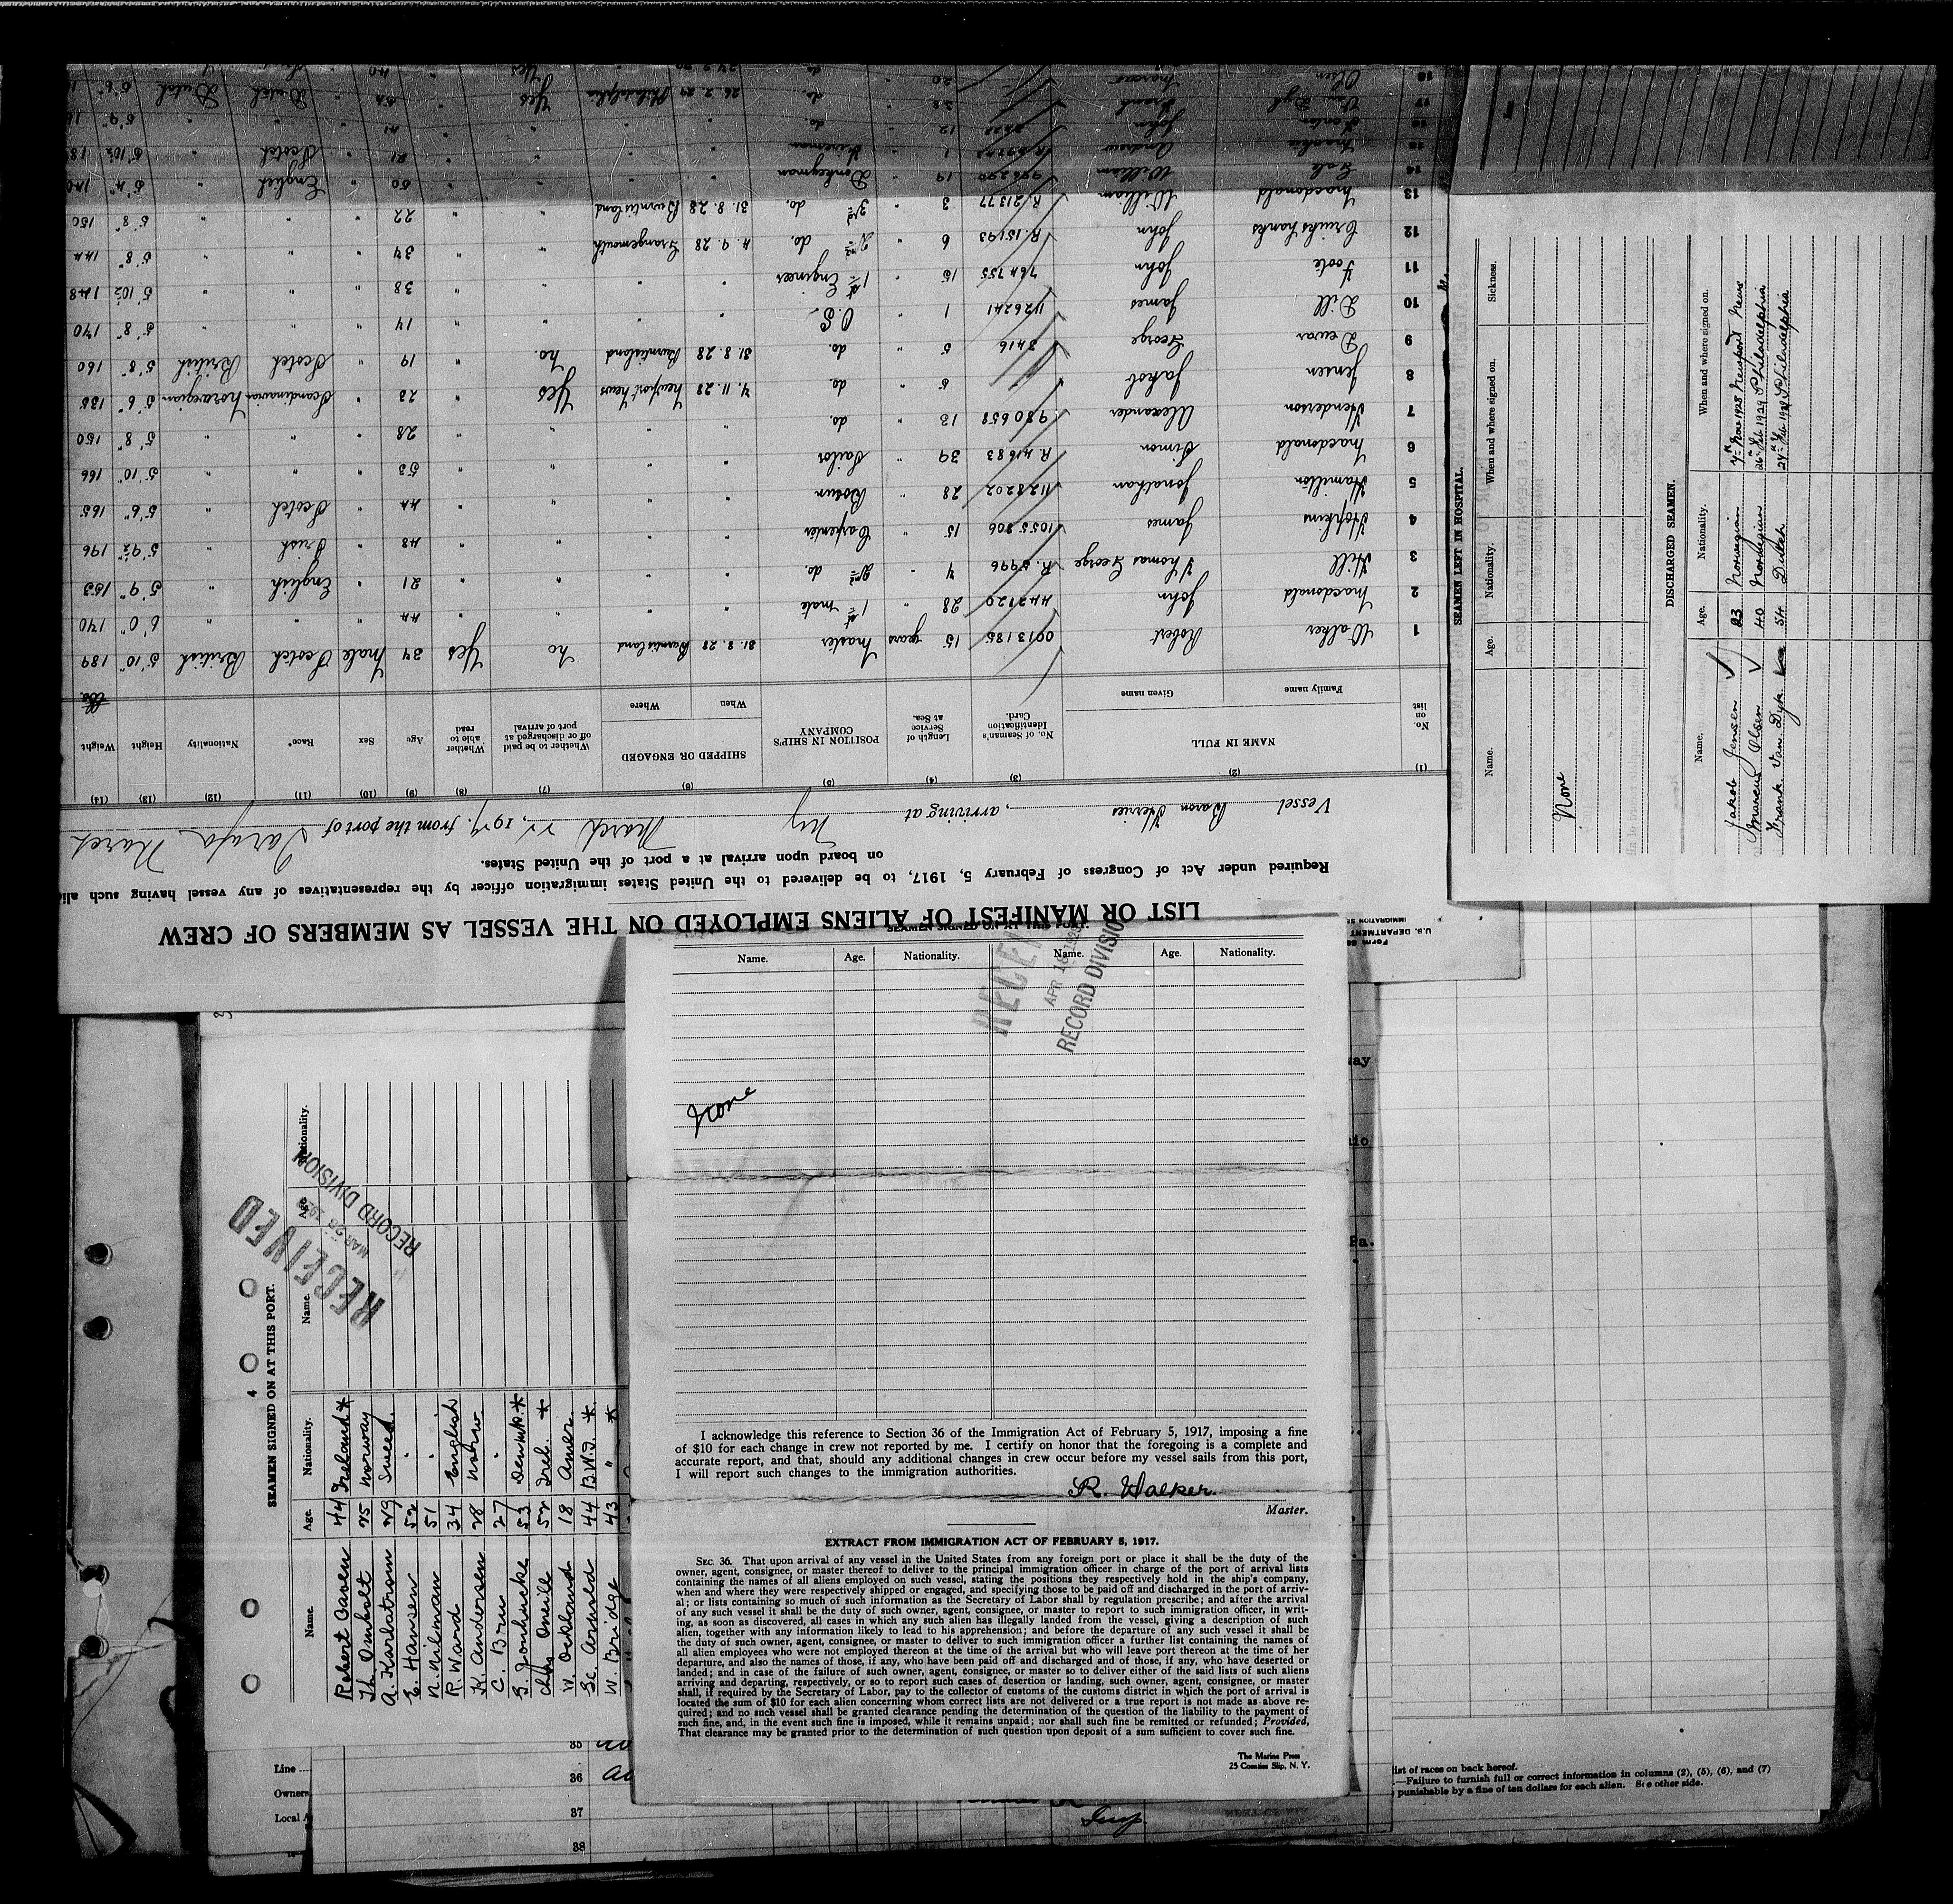 LIST OR MANIFEST OF ALIENS EMPLOYED ON THE VESSEL AS MEMBERS OF CREW
Required under Act of Congress of February 5, 1917, to be delivered to the United States immigration officer by the representatives of any vessel having such
on board upon arrival at a port of the United States.
Vessel Baron Herries, arriving at Ny March, 192, from the port of Tarafa
(1) (2) (3) (4) (5) (6) (7) (8) (9) (10) (11) (12) (13) (14)
No. on list NAME IN FULL Family name Given name No. of Seaman's Identification Card. Length of Service at Sea. POSITION IN SHIP'S COMPANY SHIPPED OR ENGAGED When Where Whether to be paid off or discharged at port of arrival Whether able to read Age Sex Race* Nationality Height Weight
1 Walker Robert 0013185 15 years Master 31.8.28 Burntisland no Yes 34 Male Scotch British 5'10" 189
2 Macdonald John 442120 28 " 1st mate " " " " 44 " " " 6'0" 170
3 Hill Thomas George R.5996 4 " 2nd do. " " " " 21 " English " 5'9" 153
4 Hopkins James 1055806 15 " Carpenter " " " " 48 " Irish " 5'9½" 196
5 Hamilton Jonathan 1128202 28 " Bosun " " " " 44 " Scotch " 5'6" 165
6 Macdonald Simon R.41683 39 " Sailor " " " " 53 " " " 5'10" 166
7 Henderson Alexander 980658 13 " do " " " " 28 " " " 5'8" 150
8 Jensen Jakob 5 " do. 7.11.28 Newport News Yes " 23 " Scandinavian Norwegian 5'6" 135
9 Dewar George 3416 5 " do. 31.8.28 Burntisland no. " 19 " Scotch British 5'8" 160
10 Dill James 1126241 1 " O.S. " " " " 17 " " " 5'8" 170
11 Foote John 764755 15 " 1st Engineer " " " " 38 " " " 5'10½" 148
12 Cruikshanks John R.15193 6 " 2nd do. 4.9.28 Grangemouth " " 34 " " " 5'8" 144
13 Macdonald William R.21377 3 " 3rd do. 31.8.28 Burntisland " " 22 " " " 5'8" 150
14 Gale William 996290 19 " Donkeyman " " " " 50 " English " 5'4" 140
15 Andrew 1 " Fireman " " " " 21 " Scotch " 5'10½"
16 John 12 " do. " " " " 41 " " " 5'9"
17 Van Dyk Frank 38 " do. 26.2.29 Philadelphia Yes " 54 " Dutch Dutch 5'6"
18 Olsen Marcus 20 " do. Yes 40
SEAMEN LEFT IN HOSPITAL.
Name. Age. Nationality. When and where signed on. Sickness.
None
DISCHARGED SEAMEN.
Name. Age. Nationality. When and where signed on.
Jakob Jensen 23 Norwegian 7th Nov 1928 Newport News
Marcus Olsen 40 Norwegian 26th Feb 1929 Philadelphia
Frank Van Dyk 54 Dutch Philadelphia
U.S. DEPARTMENT
IMMIGRATION
4
SEAMEN SIGNED ON AT THIS PORT.
Name. Age. Nationality. Name. Age. Nationality.
Robert Caven 44 Ireland *
Th. Omholt 25 Norway
A. Karlstrom 29 Sweed.
E. Hansen 52 "
N. Nilman 51 "
R. Ward 34 English
K. Andersen 28 Norw.
C. Bru 27 "
S. Jonhncke 53 Denmk. *
Chas Oneill 52 Irel. *
W. Ockland 18 Amer.
Sc. Arnold 44 B.W.I. *
W. Bridge 43 " *
RECEIVED
MAR 28
RECORD DIVISION
Name. Age. Nationality. Name. Age. Nationality.
APR 18
RECORD DIVISION
None
I acknowledge this reference to Section 36 of the Immigration Act of February 5, 1917, imposing a fine
of $10 for each change in crew not reported by me. I certify on honor that the foregoing is a complete and
accurate report, and that, should any additional changes in crew occur before my vessel sails from this port,
I will report such changes to the immigration authorities.
R. Walker
Master.
EXTRACT FROM IMMIGRATION ACT OF FEBRUARY 5, 1917.
SEC. 36. That upon arrival of any vessel in the United States from any foreign port or place it shall be the duty of the
owner, agent, consignee, or master thereof to deliver to the principal immigration officer in charge of the port of arrival lists
containing the names of all aliens employed on such vessel, stating the positions they respectively hold in the ship's company,
when and where they were respectively shipped or engaged, and specifying those to be paid off and discharged in the port of arriv-
al; or lists containing so much of such information as the Secretary of Labor shall by regulation prescribe; and after the arrival
of any such vessel it shall be the duty of such owner, agent, consignee, or master to report to such immigration officer, in writ-
ing, as soon as discovered, all cases in which any such alien has illegally landed from the vessel, giving a description of such
alien, together with any information likely to lead to his apprehension; and before the departure of any such vessel it shall be
the duty of such owner, agent, consignee, or master to deliver to such immigration officer a further list containing the names of
all alien employees who were not employed thereon at the time of the arrival but who will leave port thereon at the time of her
departure, and also the names of those, if any, who have been paid off and discharged and of those, if any, who have deserted or
landed; and in case of the failure of such owner, agent, consignee, or master so to deliver either of the said lists of such aliens
arriving and departing, respectively, or so to report such cases of desertion or landing, such owner, agent, consignee, or master
shall, if required by the Secretary of Labor, pay to the collector of customs of the customs district in which the port of arrival is
located the sum of $10 for each alien concerning whom correct lists are not delivered or a true report is not made as above re-
quired; and no such vessel shall be granted clearance pending the determination of the question of the liability to the payment of
such fine, and, in the event such fine is imposed, while it remains unpaid; nor shall such fine be remitted or refunded; Provided,
That clearance may be granted prior to the determination of such question upon deposit of a sum sufficient to cover such fine.
The Marine Press
25 Coenties Slip, N. Y.
Line
Owners
Local A
35
36
37
38
Pa.
list of races on back hereof.
—Failure to furnish full or correct information in columns (2), (5), (6), and (7)
punishable by a fine of ten dollars for each alien. See other side.